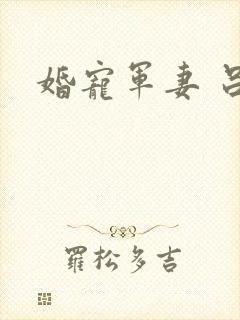 婚寵軍妻
羅松多吉